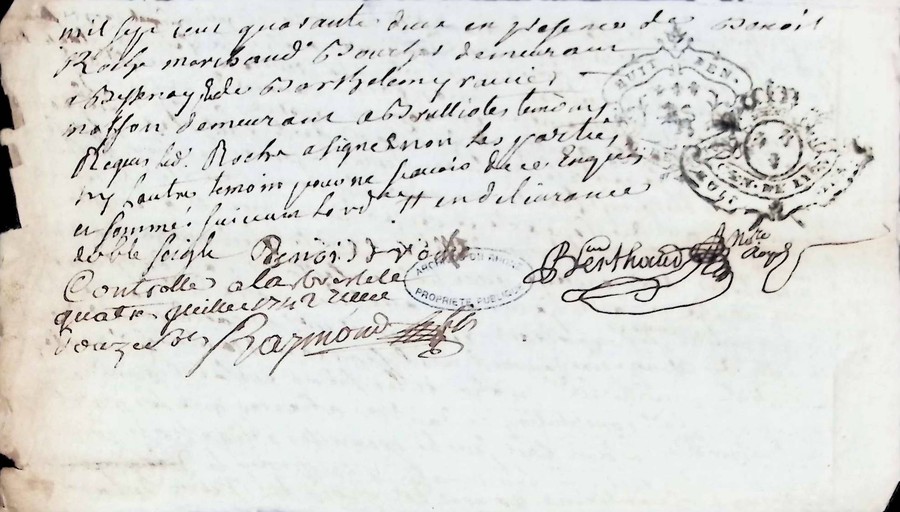 mil sept cent quarante deux en presence de Benoist
Roche marchand Bourgs demeurant
a Bessenay & de Barthelemy
masson demeurant a Brullioles temoins
Requis led. Roche a signe & non les parties
ny l'autre temoin pour ne scavoir de ce Enquis
et sommé suivant l'ord.ce # en delivrance
de ble seigle Benoist Roche
Controllé a la Bresle le
quatre juillet 1742 Recu
douze sols Raymond
Berthaud Nore Royal
HUIT DEN.
HUIT DEN. DE LYON
ARCHIVES DU RHONE
PROPRIETE PUBLIQUE